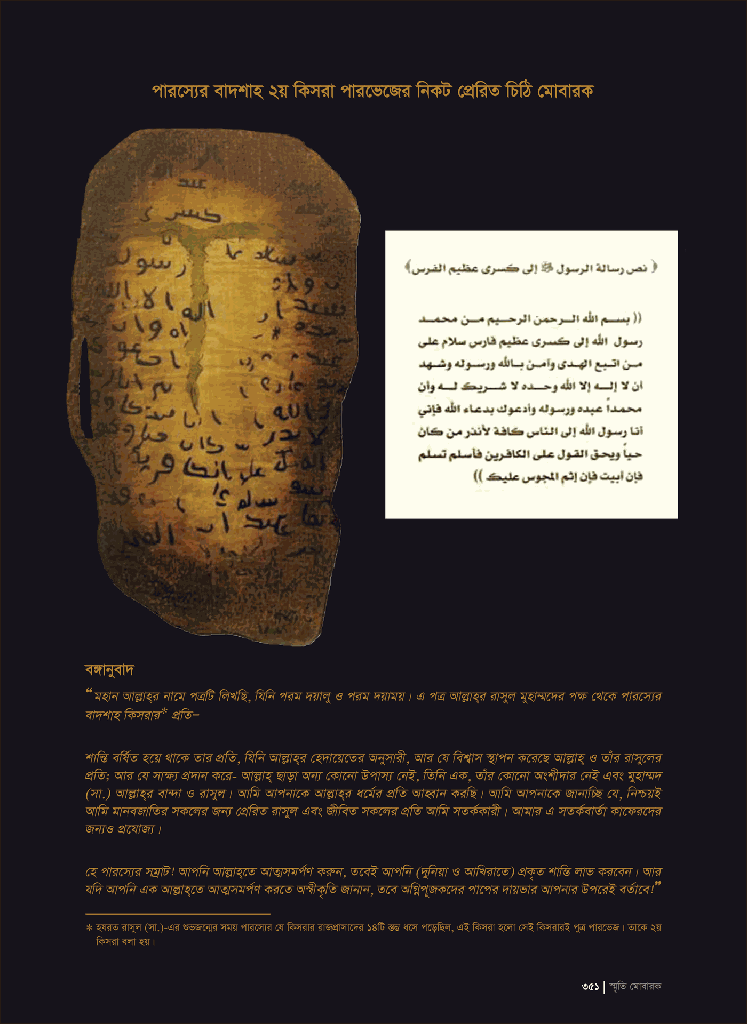 পারস্যের বাদশাহ ২য় কিসরা পারভেজের নিকট প্রেরিত চিঠি মোবারক
عبد
كسر
رسوله
الله الا
﴿ نص رسالة الرسول ﷺ إلى كسرى عظيم الفرس﴾
(( بسـم الله الـرحمن الرحـيم مـن محمـد
رسول الله إلى كسرى عظيم فارس سلام على
من اتبع الهدى وآمن بـالله ورسـوله وشـهد
أن لا إلـه إلا الله وحـده لا شـريك لـه وأن
محمداً عبده ورسوله وأدعوك بدعاء الله فإني
أنا رسول الله إلى الناس كافة لأنذر من كان
حياً ويحق القول على الكافرين فأسلم تسلم
فإن أبيت فإن إثم المجوس عليك ))
বঙ্গানুবাদ
“মহান আল্লাহ্‌র নামে পত্রটি লিখছি, যিনি পরম দয়ালু ও পরম দয়াময়। এ পত্র আল্লাহ্‌র রাসুল মুহাম্মদের পক্ষ থেকে পারস্যের
বাদশাহ কিসরার* প্রতি–
শান্তি বর্ষিত হয়ে থাকে তার প্রতি, যিনি আল্লাহ্‌র হেদায়েতের অনুসারী, আর যে বিশ্বাস স্থাপন করেছে আল্লাহ্‌ ও তাঁর রাসুলের
প্রতি; আর যে সাক্ষ্য প্রদান করে- আল্লাহ্‌ ছাড়া অন্য কোনো উপাস্য নেই, তিনি এক, তাঁর কোনো অংশীদার নেই এবং মুহাম্মদ
(সা.) আল্লাহ্‌র বান্দা ও রাসুল। আমি আপনাকে আল্লাহ্‌র ধর্মের প্রতি আহ্বান করছি। আমি আপনাকে জানাচ্ছি যে, নিশ্চয়ই
আমি মানবজাতির সকলের জন্য প্রেরিত রাসুল এবং জীবিত সকলের প্রতি আমি সতর্ককারী। আমার এ সতর্কবার্তা কাফেরদের
জন্যও প্রযোজ্য।
হে পারস্যের সম্রাট! আপনি আল্লাহ্‌তে আত্মসমর্পণ করুন, তবেই আপনি (দুনিয়া ও আখিরাতে) প্রকৃত শান্তি লাভ করবেন। আর
যদি আপনি এক আল্লাহ্‌তে আত্মসমর্পণ করতে অস্বীকৃতি জানান, তবে অগ্নিপূজকদের পাপের দায়ভার আপনার উপরেই বর্তাবে!”
* হযরত রাসুল (সা.)-এর শুভজন্মের সময় পারস্যের যে কিসরার রাজপ্রাসাদের ১৪টি স্তম্ভ ধসে পড়েছিল, এই কিসরা হলো সেই কিসরারই পুত্র পারভেজ। তাকে ২য়
কিসরা বলা হয়।
৩৫১ | স্মৃতি মোবারক